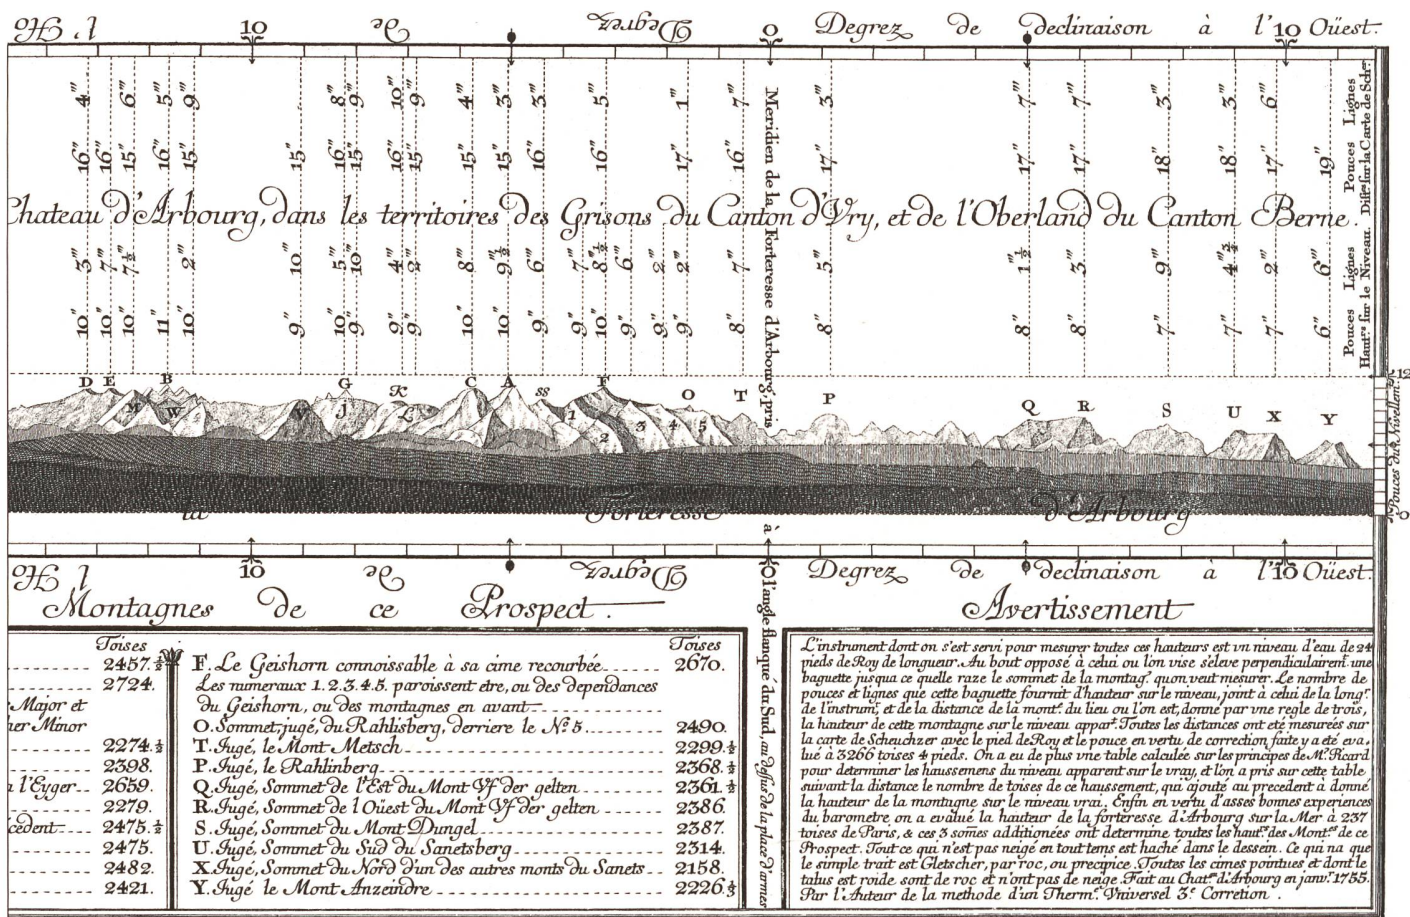 l' Ho 10 de Degrez 0 Degrez de declinaison à l' 10 Oüest.
4''' 6''' 5''' 9''' 8''' 9''' 10''' 9''' 4''' 3''' 3''' 5''' 1''' 7''' 3''' 7''' 7''' 3''' 3''' 6'''
16'' 16'' 15'' 16'' 15'' 15'' 16'' 15'' 16'' 15'' 15'' 15'' 16'' 16'' 17'' 16'' 17'' 17'' 17'' 18'' 18'' 17'' 19''
Pouces Lignes
Dist.es sur la Carte de Sch.er
Chateau d'Arbourg, dans les territoires des Grisons du Canton d'Vry, et de l'Oberland du Canton Berne.
3''' 7''' 7½''' 2''' 10''' 5''' 10''' 4''' 2''' 8''' 9½''' 6''' 7''' 8½''' 6''' 2''' 2''' 7''' 5''' 1½''' 3''' 9''' 4¾''' 2''' 6'''
10'' 10'' 10'' 11'' 10'' 9'' 10'' 9'' 9'' 9'' 10'' 10'' 9'' 9'' 10'' 9'' 9'' 9'' 8'' 8'' 8'' 8'' 7'' 7'' 7'' 6''
Pouces Lignes
Haut.rs sur le Niveau.
Meridien de la Forteresse d'Arbourg, pris
D E B G K C A SS F O T P Q R S U X Y
M W V J L 1 2 3 4 5
12
Pouces du Nivellem.t
0
la Forteresse d'Arbourg
à
l' Ho 10 de Degrez 0 Degrez de declinaison à l' 10 Oüest.
l'angle flanqué du Sud, au dessus de la place d'armes
Montagnes de ce Prospect.
Toises
2457.½
2724.
Major et
her Minor
2274.½
2398.
l'Eyger 2659.
2279.
cédent 2475.½
2475.
2482.
2421.
Toises
F. Le Geishorn connoissable à sa cime recourbée 2670.
Les numeraux 1. 2. 3. 4. 5. paroissent etre, ou des dependances
du Geishorn, ou des montagnes en avant
O. Sommet, jugé, du Rahlisberg, derriere le No. 5 2490.
T. Jugé, le Mont Metsch 2299.½
P. Jugé, le Rahlinberg 2368.½
Q. Jugé, Sommet de l'Est du Mont Yf der gelten 2361.½
R. Jugé, Sommet de l'Oüest du Mont Yf der gelten 2386.
S. Jugé, Sommet du Mont Dungel 2387.
U. Jugé, Sommet du Sud du Sanetsberg 2314.
X. Jugé, Sommet du Nord d'un des autres monts du Sanets 2158.
Y. Jugé le Mont Anzeindre 2226.½
Avertissement
L'instrument dont on s'est servi pour mesurer toutes ces hauteurs est vn niveau d'eau de 24
pieds de Roy de longueur. Au bout opposé à celui ou l'on vise s'eleve perpendiculairem.t une
baguette jusqua ce quelle raze le sommet de la montag.e quon veut mesurer. Le nombre de
pouces et lignes que cette baguette fournit d'hauteur sur le niveau, joint à celui de la long.r
de l'instrum.t, et de la distance de la mont.e du lieu ou l'on est, donne par vne regle de trois,
la hauteur de cette montagne sur le niveau appar.t Toutes les distances ont eté mesurées sur
la carte de Scheuchzer avec le pied de Roy et le pouce en vertu de correction faite y a eté eva,
lué à 3266 toises 4 pieds. On a eu de plus vne table calculée sur les principes de Mr. Picard
pour determiner les haussemens du niveau apparent sur le vray, et l'on a pris sur cette table
suivant la distance le nombre de toises de ce haussement, qui ajouté au precedent à donné
la hauteur de la montagne sur le niveau vrai. Enfin en vertu d'asses bonnes experiences
du barometre, on a evalué la hauteur de la forteresse d'Arbourg sur la Mer à 237
toises de Paris, & ces 3 som̃es additionées ont determiné toutes les haut.rs des Mont.es de ce
Prospect. Tout ce qui n'est pas neigé en tout tems est haché dans le dessein. Ce qui na que
le simple trait est Gletscher, par roc, ou precipice. Toutes les cimes pointues et dont le
talus est roide sont de roc et n'ont pas de neige. Fait au Chat.au d'Arbourg en janv.r 1755.
Par l'Auteur de la methode d'un Therm.e Vniversel 3.e Corretion.